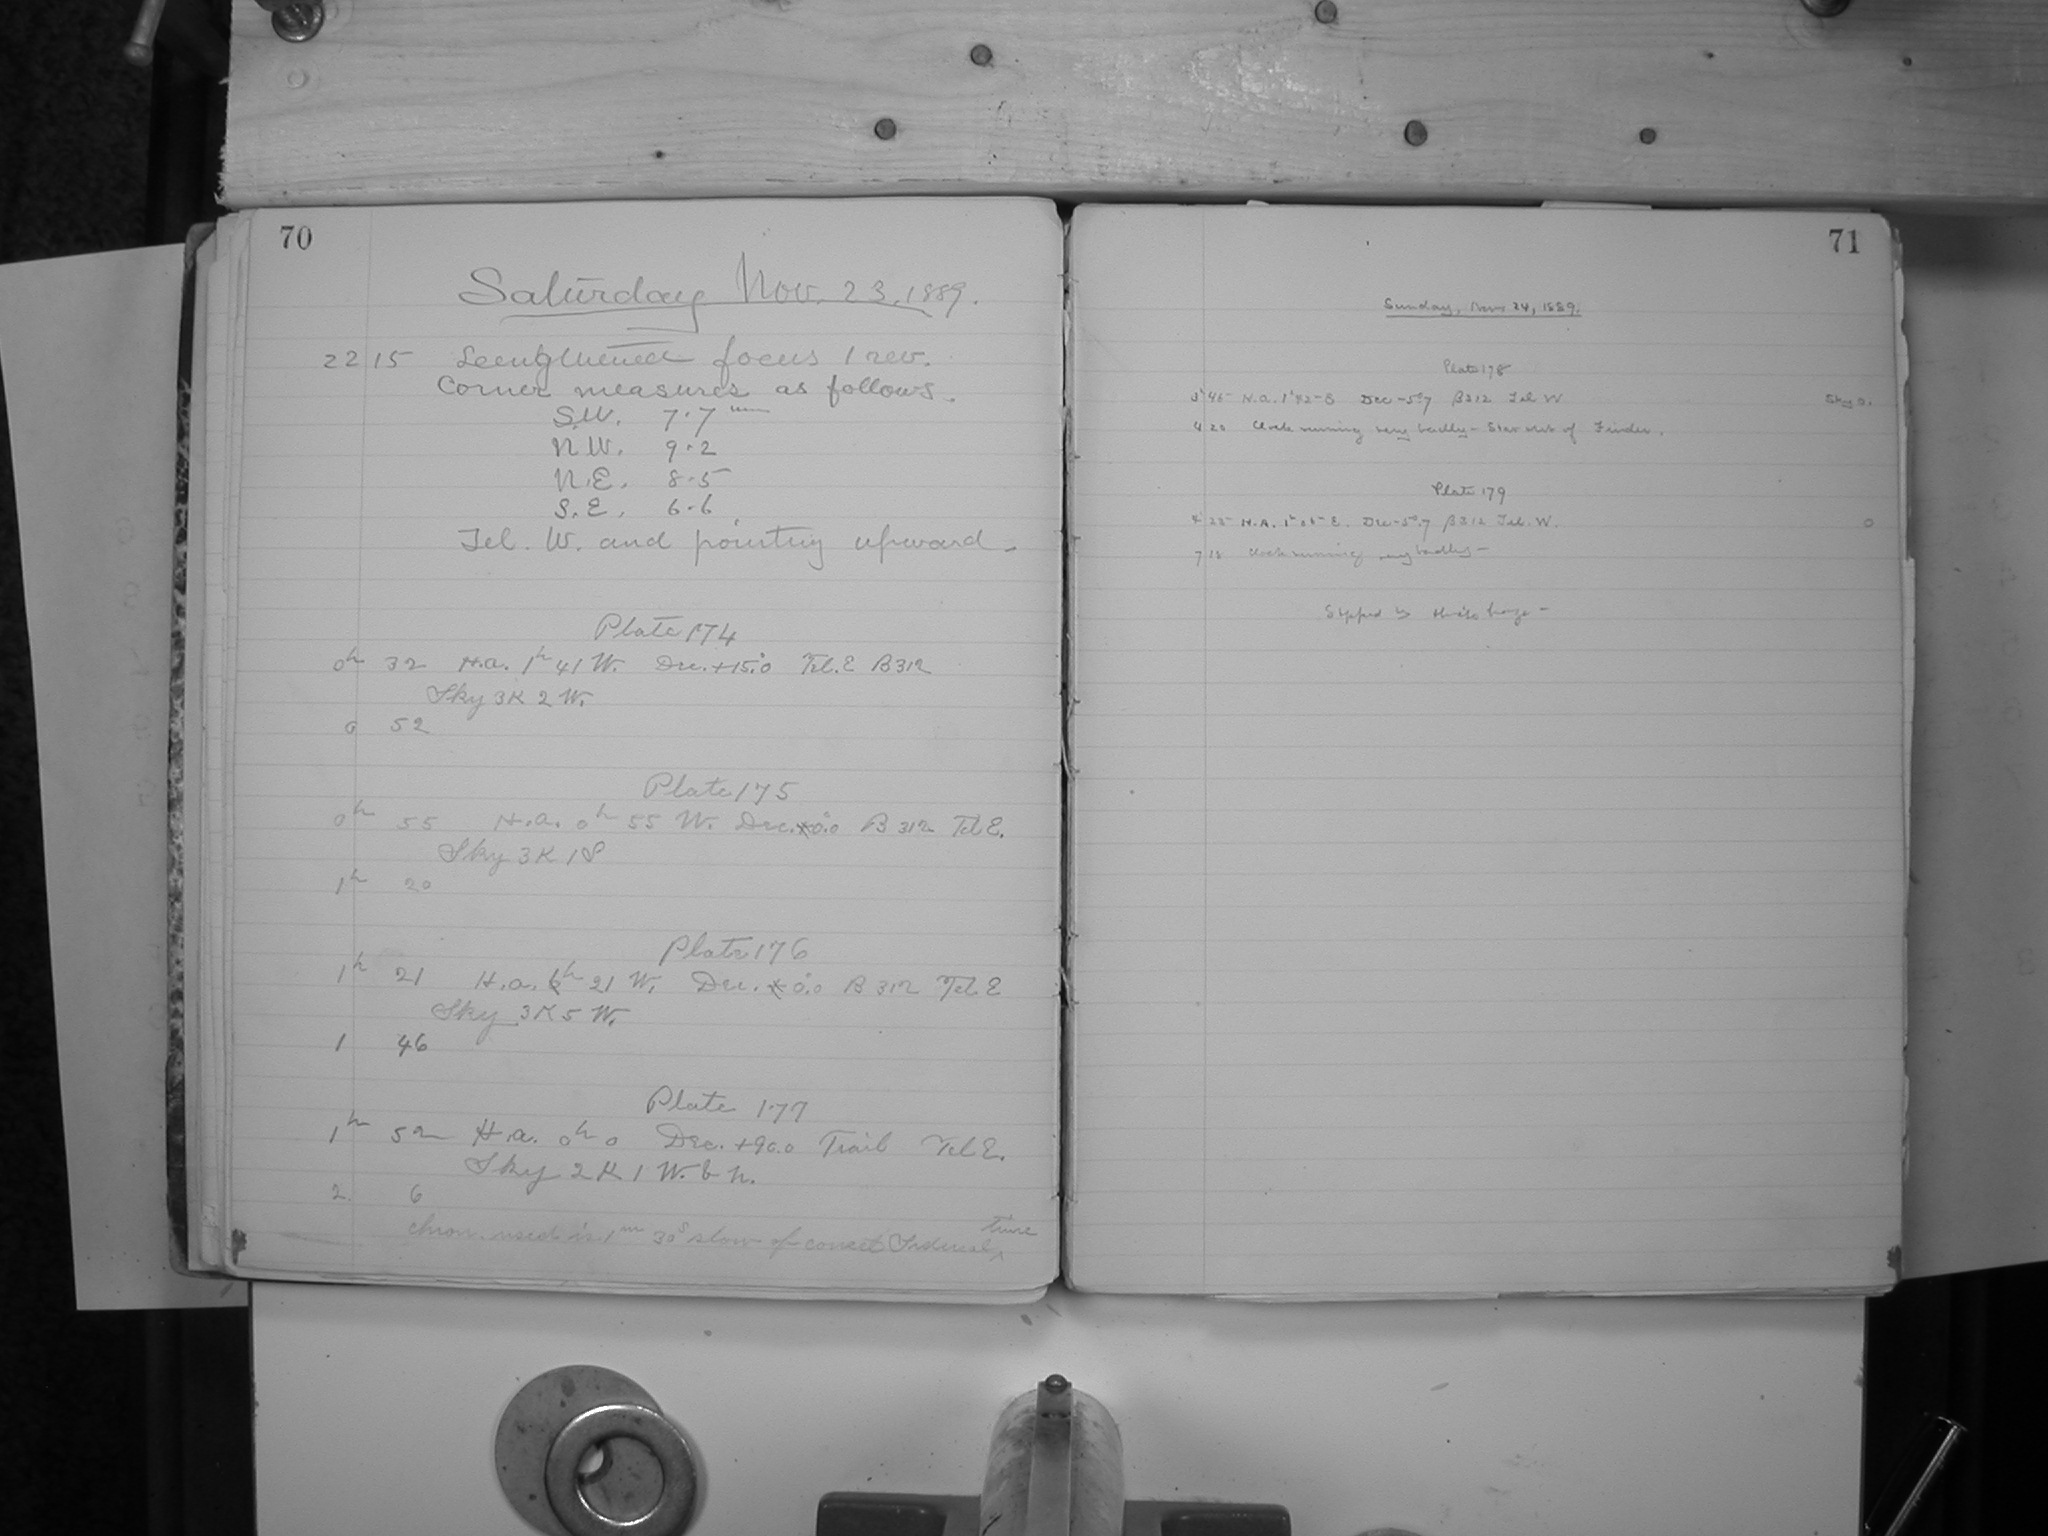 70
Saturday Nov. 23, 1889.
22 15 Lengthened focus 1 rev.
Corner measures as follows.
S.W. 7.7 mm
N.W. 9.2
N.E. 8.5
S.E. 6.6
Tel. W. and pointing upward.
Plate 174
0h 32 H.a. 1h 41 W. Dec. +15.°0 Tel. E B312
Sky 3K 2 W.
0 52
Plate 175
0h 55 H.a. 0h 55 W. Dec. 0.°0 B 312 Tel E.
Sky 3K 1 S
1h 20
Plate 176
1h 21 H.a. h 21 W. Dec. 0.°0 B 312 Tel E
Sky 3K 5 W.
1 46
Plate 177
1h 52 H.a. 0h 0 Dec. +90.0 Trail Tel E.
Sky 2 K 1 W. b N.
2 6
chron. used is 1m 30s slow of correct Sidereal time
71
Sunday, Nov. 24, 1889.
Plate 178
H.a. Dec -5°.7 B312 Tel W Sky 0.
4 20 Clock running very badly - Star out of Finder.
Plate 179
H.A. E. Dec -5°.7 B312 Tel. W. 0
7 18 Clock running very badly -
Stopped by haze -